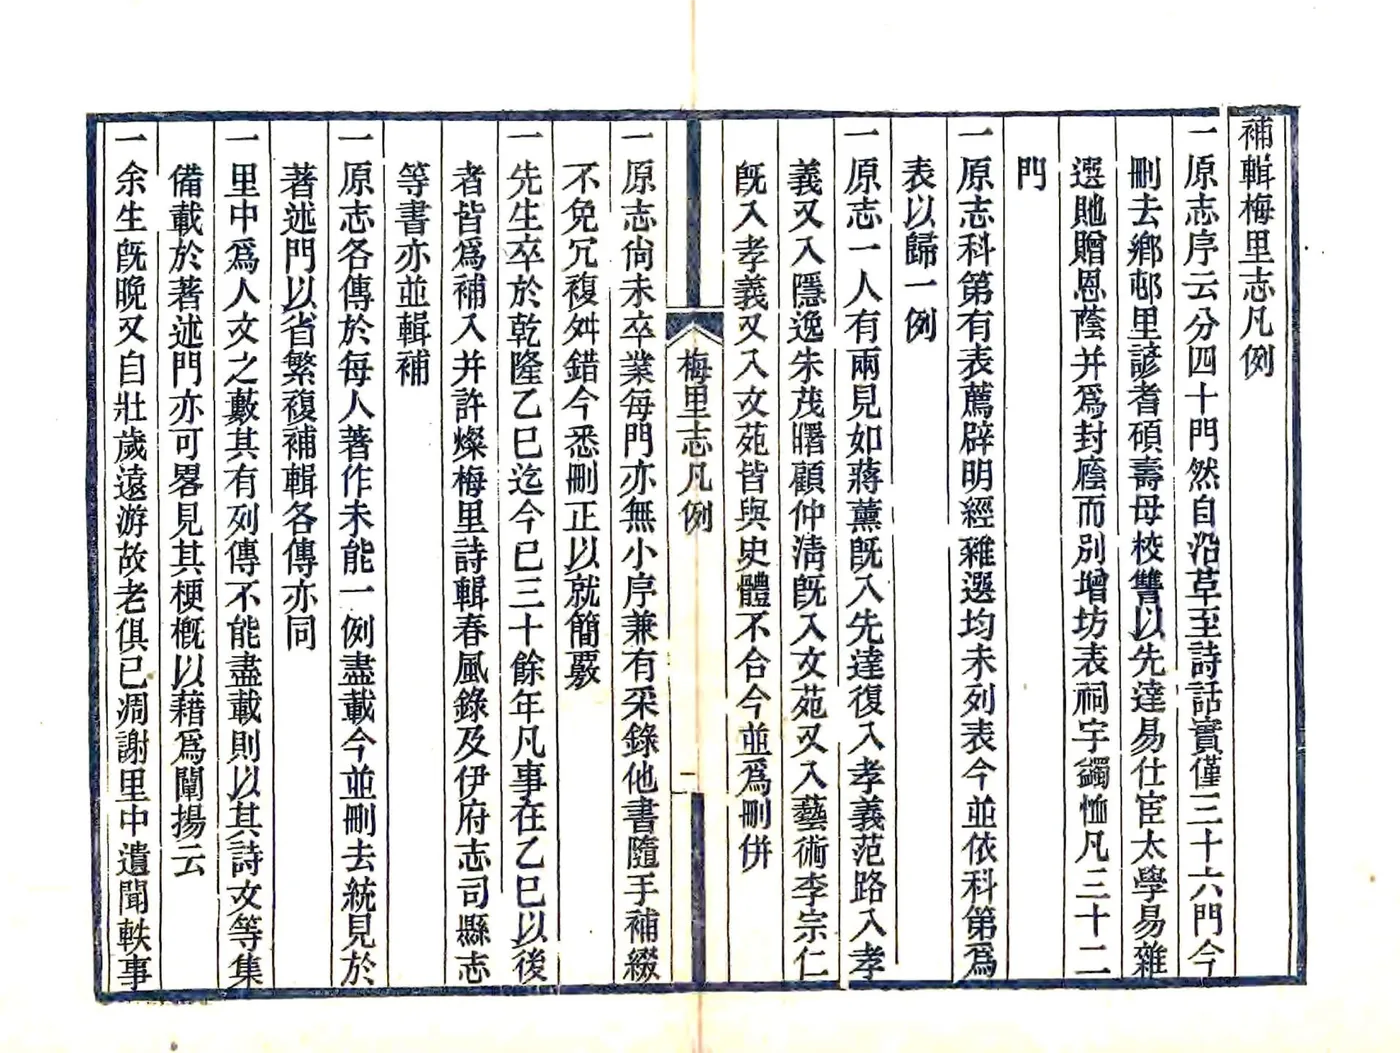 補輯梅里志凡例
一原志序云分四十門然自沿革至詩話實僅三十六門今
刪去鄉邨里諺耆碩壽母校讐以先達易仕宦太學易雜
選貤贈恩蔭并為封廕而別增坊表祠宇蠲恤凡三十二
門
一原志科第有表薦辟明經雜選均未列表今並依科第為
表以歸一例
一原志一人有兩見如蔣薰旣入先達復入孝義范路入孝
義又入隱逸朱茂曙顧仲淸旣入文苑又入藝術李宗仁
旣入孝義又入文苑皆與史體不合今並為刪併
梅里志凡例
一
一原志尙未卒業每門亦無小序兼有采錄他書隨手補綴
不免冗複舛錯今悉刪正以就簡覈
一先生卒於乾隆乙巳迄今已三十餘年凡事在乙巳以後
者皆爲補入并許燦梅里詩輯春風錄及伊府志司縣志
等書亦並輯補
一原志各傳於每人著作未能一例盡載今並刪去統見於
著述門以省繁複補輯各傳亦同
一里中爲人文之藪其有列傳不能盡載則以其詩文等集
備載於著述門亦可畧見其梗槪以藉爲闡揚云
一余生旣晚又自壯歲遠游故老俱已凋謝里中遺聞軼事